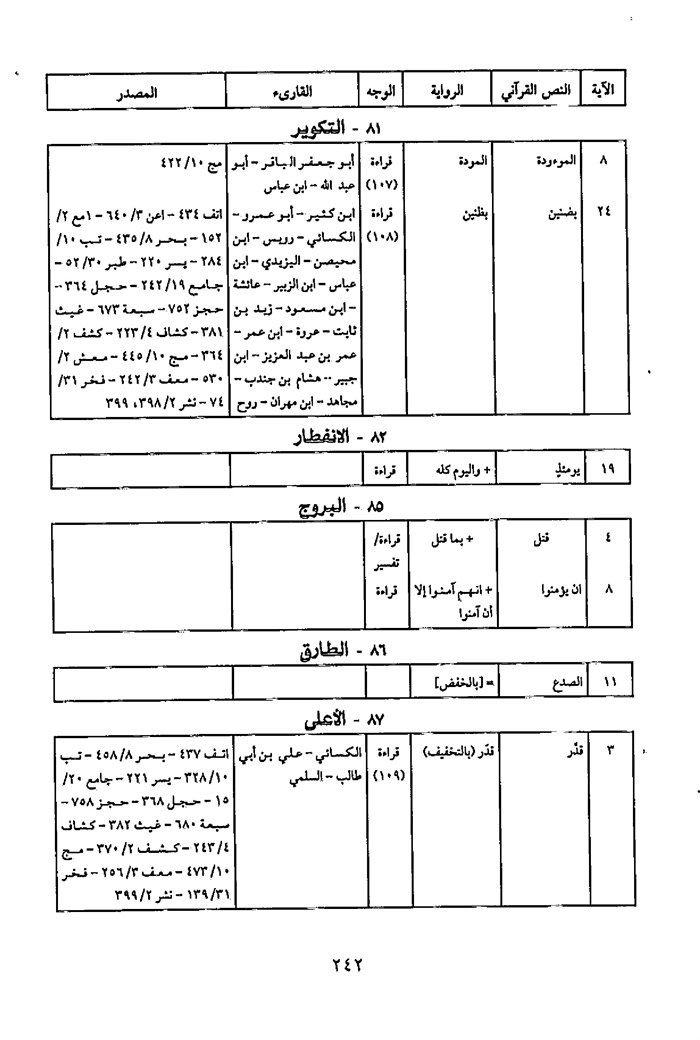 الآية النص القرآني الرواية الوجه القارىء المصدر
٨١ - التكوير
٨ الموءودة المودة قراءة أبو جعفر الباقر - أبو مج ٤٢٢/١٠
(١٠٧) عبد الله - ابن عباس
٢٤ بضنين بظنين قراءة ابن كثير - أبو عمرو - اتف ٤٣٤ - اعن ٦٤٠/٣ - امع ٢/
(١٠٨) الكسائي - رويس - ابن ١٥٢ - بحر ٤٣٥/٨ - تب ١٠/
محيصن - اليزيدي - ابن ٢٨٤ - يسر ٢٢٠ - طبر ٥٢/٣٠ -
عباس - ابن الزبير - عائشة جامع ٢٤٢/١٩ - حجل ٣٦٤ -
- ابن مسعود - زيد بن حجز ٧٥٢ - سبعة ٦٧٣ - غيث
ثابت - عروة - ابن عمر - ٣٨١ - كشاف ٢٢٣/٤ - كشف ٢/
عمر بن عبد العزيز - ابن ٣٦٤ - مج ٤٤٥/١٠ - معش ٢/
جبير - هشام بن جندب - ٥٣٠ - معف ٢٤٢/٣ - فخر ٣١/
مجاهد - ابن مهران - روح ٧٤ - نشر ٣٩٨/٢، ٣٩٩
٨٢ - الانفطار
١٩ يومئذٍ + واليوم كله قراءة
٨٥ - البروج
٤ قتل + بما قتل قراءة/
تفسير
٨ ان يؤمنوا + انهم آمنوا إلا قراءة
أن آمنوا
٨٦ - الطارق
١١ الصدع = [بالخفض]
٨٧ - الأعلى
٣ قدّر قدَر (بالتخفيف) قراءة الكسائي - علي بن أبي اتف ٤٣٧ - بحر ٤٥٨/٨ - تب
(١٠٩) طالب - السلمي ٣٢٨/١٠ - يسر ٢٢١ - جامع ٢٠/
١٥ - حجل ٣٦٨ - حجز ٧٥٨ -
سبعة ٦٨٠ - غيث ٣٨٢ - كشاف
٢٤٣/٤ - كشف ٣٧٠/٢ - مج
٤٧٣/١٠ - معف ٢٥٦/٣ - فخر
١٣٩/٣١ - نشر ٣٩٩/٢
٢٤٢